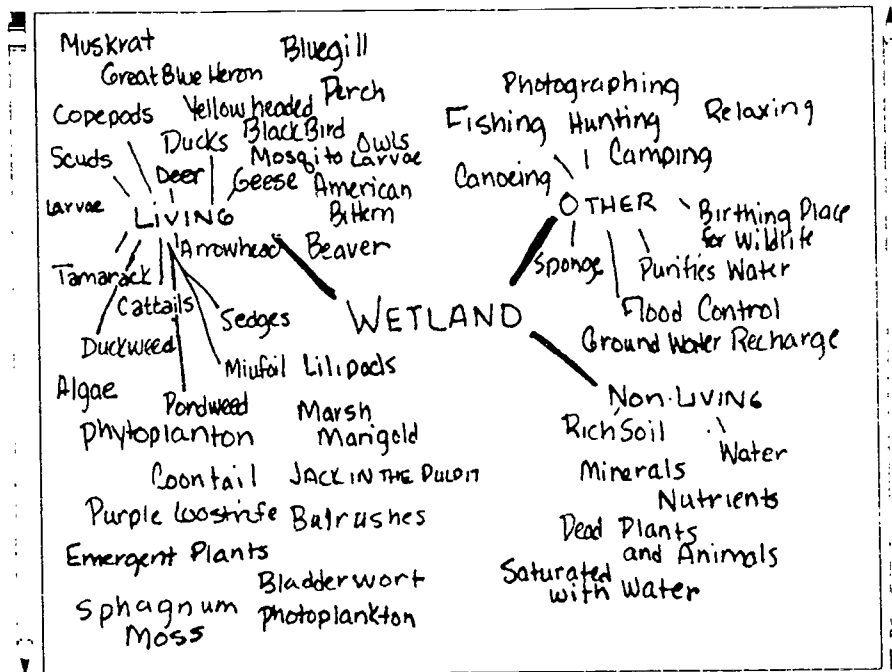 Muskrat
Bluegill
Great Blue Heron
Perch
Copepods
Yellow headed
Black Bird
Ducks
Owls
Scuds
Mosqito Larvae
Deer
Geese
American
Bittern
Larvae
LiViNG
Arrowhead
Beaver
Tamarack
Cattails
Sedges
Duckweed
Miufoil
Lilipads
Algae
Pondweed
Marsh
Marigold
Phytoplanton
Coontail
JACK IN THE PULPIT
Purple Loostrife
Bulrushes
Emergent Plants
Bladderwort
Sphagnum
Moss
Photoplankton
WETLAND
Photographing
Relaxing
Fishing
Hunting
Camping
Canoeing
OTHER
Birthing Place
for Wildlife
Sponge
Purifies Water
Flood Control
Ground Water Recharge
Non-LIVING
Rich Soil
Water
Minerals
Nutrients
Dead Plants
and Animals
Saturated
with Water